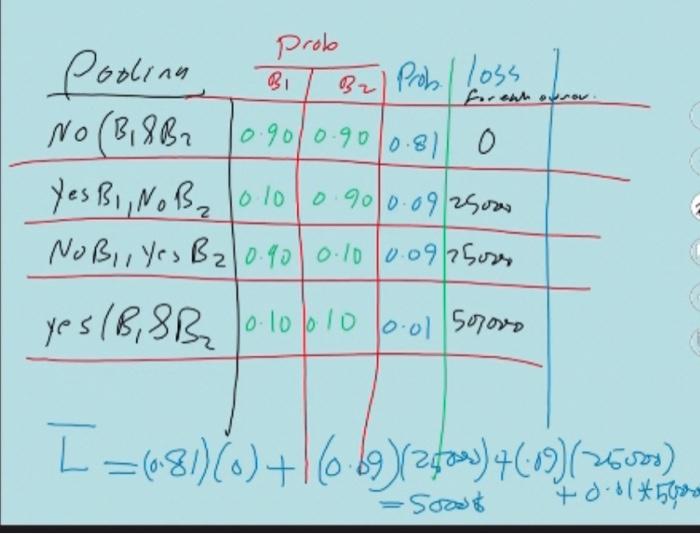 Prob
Pooling B1 B2 Prob. loss
For each owner.
No (B1&B2 0.90 0.90 0.81 0
Yes B1, No B2 0.10 0.90 0.09 25000
No B1, Yes B2 0.90 0.10 0.09 25000
yes (B1&B2 0.10 0.10 0.01 50,000
L = (0.81)(0) + (0.09)(25000) + (.09)(25000)
= 5000$ + 0.01*50,000